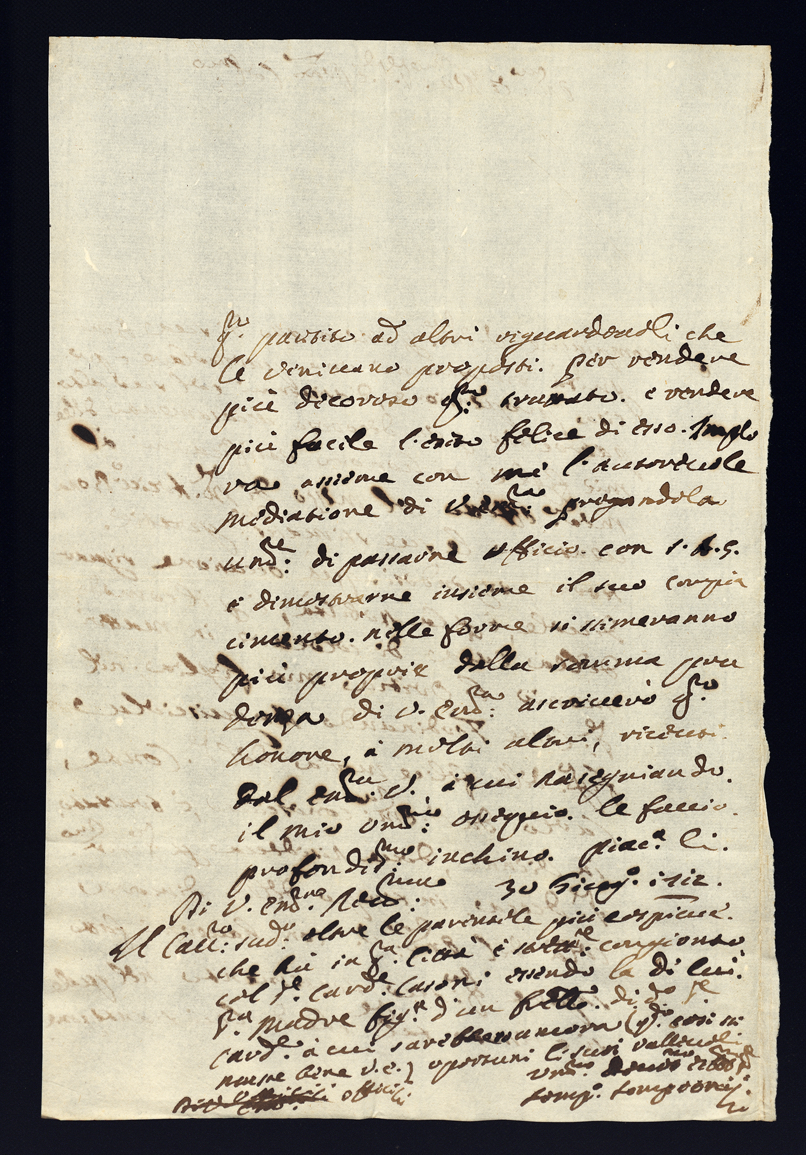 q.to partito ad altri riguardevoli che
le venivano proposti. Per rendere
più decoroso q.to trattato. e rendere
più facile l'esito felice di esso. Implo
ra assieme con me l'autorevole
mediatione di V. Em.za pregandola
um.te di passarne ufficio con S. A. S.
e dimostrarne insieme il suo compia
cimento. nelle forme si stimeranno
più proprie dalla somma pru
denza di V. Em.za ascriverò q.to
honore, a molti altri, ricevuti
dal. Em.za V. a cui rassegniando.
il mio um.mo ossequio. le faccio.
profondis.mo inchino. Piac.a li.
30 Giug.o 1712.
Di V. Em.za Rev.ma
Il Cav.ro sud.o oltre le parentele più cospicue.
che hà in q.ta Città è congionto
col S.r Card.le Casoni essendo la di lui.
S.ra Madre fig.a d'un frello. di d.o S.r
Card.le à cui sarebbero ancora
V. E.) oportuni li suoi
officii